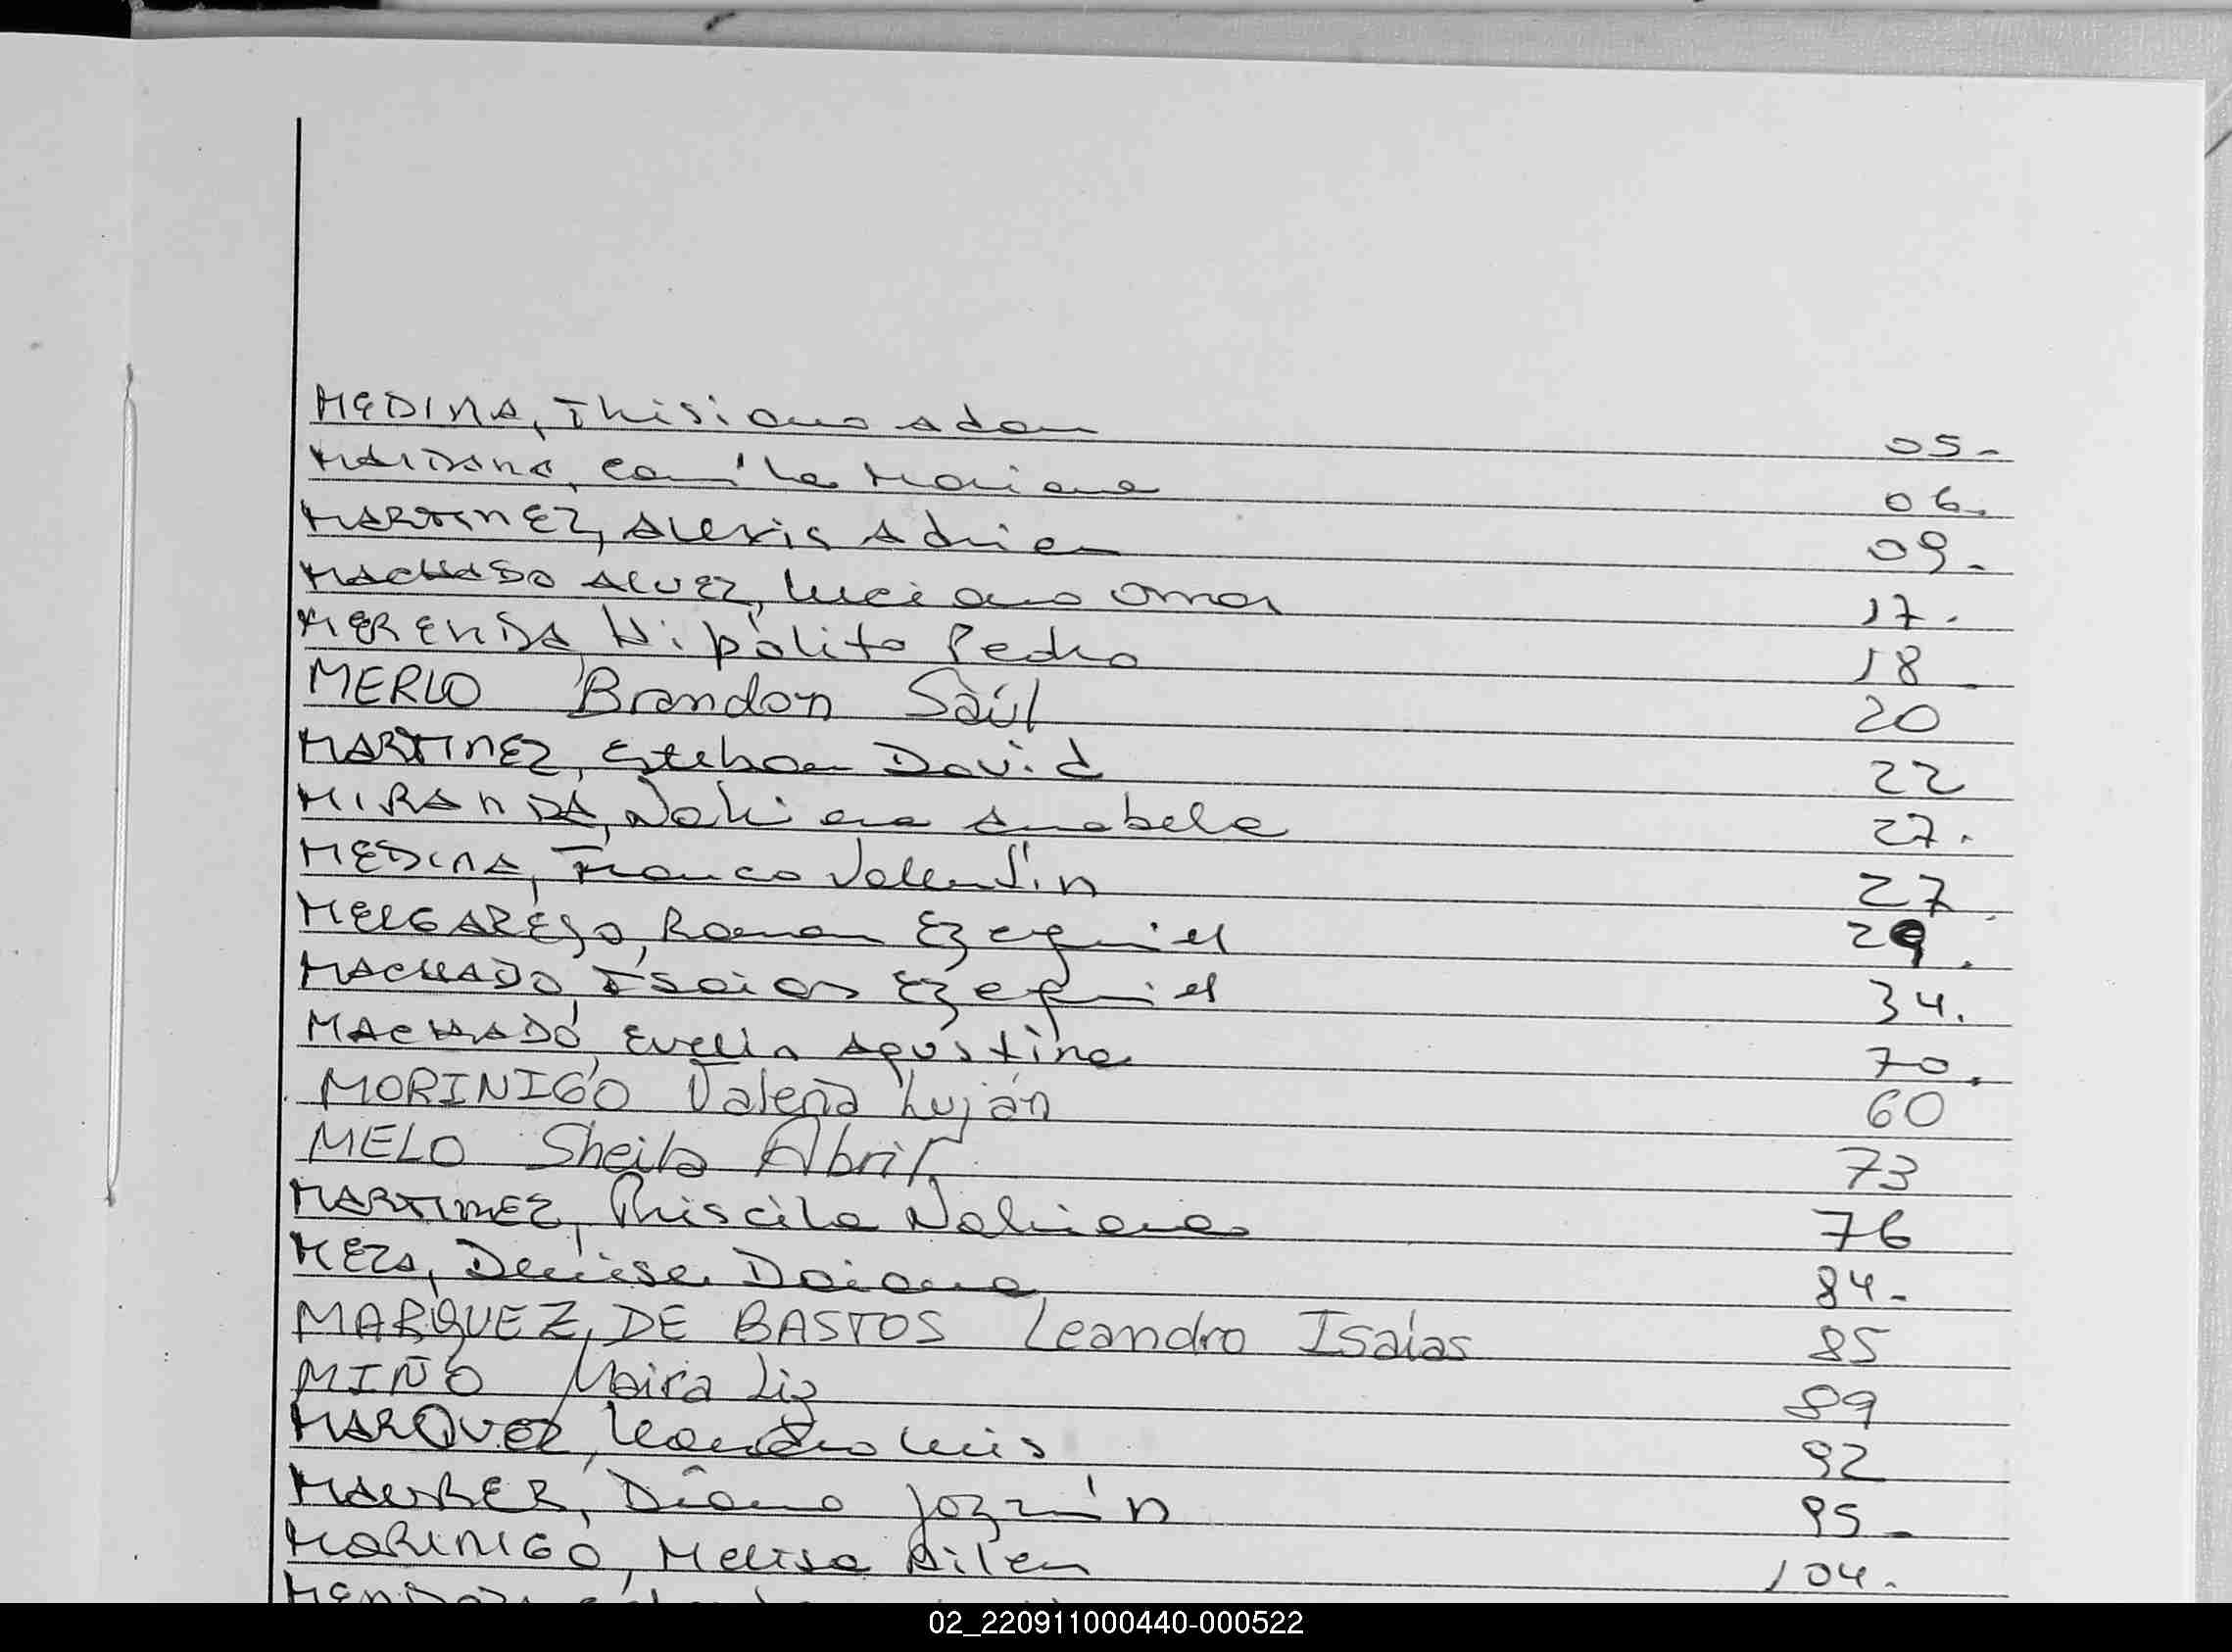 MEDINA, Thisiano Adan 05.-
MAIDANA, Camila Mariana 06.
MARTINEZ, Alexis Adrian 09.-
MACHADO ALVEZ, Luciano Omar 17.-
MERENDA, Hipólito Pedro 18
MERLO Brandon Saúl 20
MARTINEZ, Esteban David 22
MIRANDA, Nahiara Anabela 27.
MEDINA, Franco Valentín 27.
MELGAREJO, Roman Ezequiel 29.
MACHADO, Isaias Ezequiel 34.
MACHADO, Evelin Agustina 70.
MORINIGO Valeria Luján 60
MELO Sheila Abril 73
MARTINEZ, Priscila Nahiara 76
MEZA, Denise Daiana 84.-
MARQUEZ, DE BASTOS Leandro Isaías 85
MIÑO Maira Liz 89
MARQUEZ, Leandro Luis 92
MAURER, Diana Jazmín 95.-
MORINIGO, Melisa Ailen 104.-
02_220911000440-000522